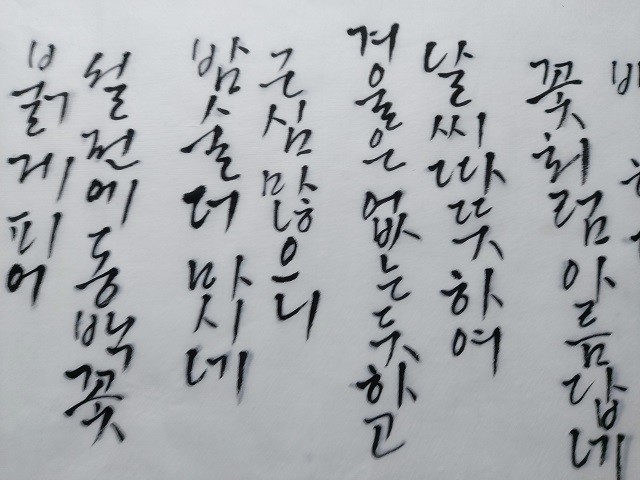 꽃처럼 아름답네
날씨 따뜻하여
겨울은 없는듯 하고
근심 많으니
밤술 더 마시네
설전에 동백꽃
붉게 피어